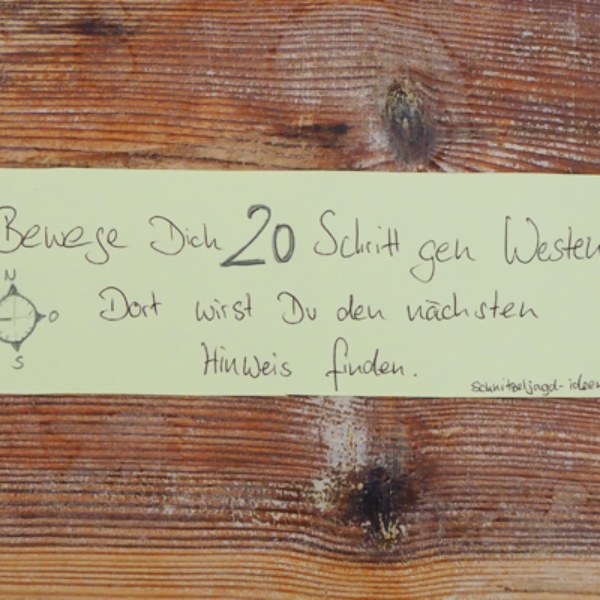 Bewege Dich 20 Schritt gen Westen
N
O
S
Dort wirst Du den nächsten
Hinweis finden.
Schnitzeljagd-ideen